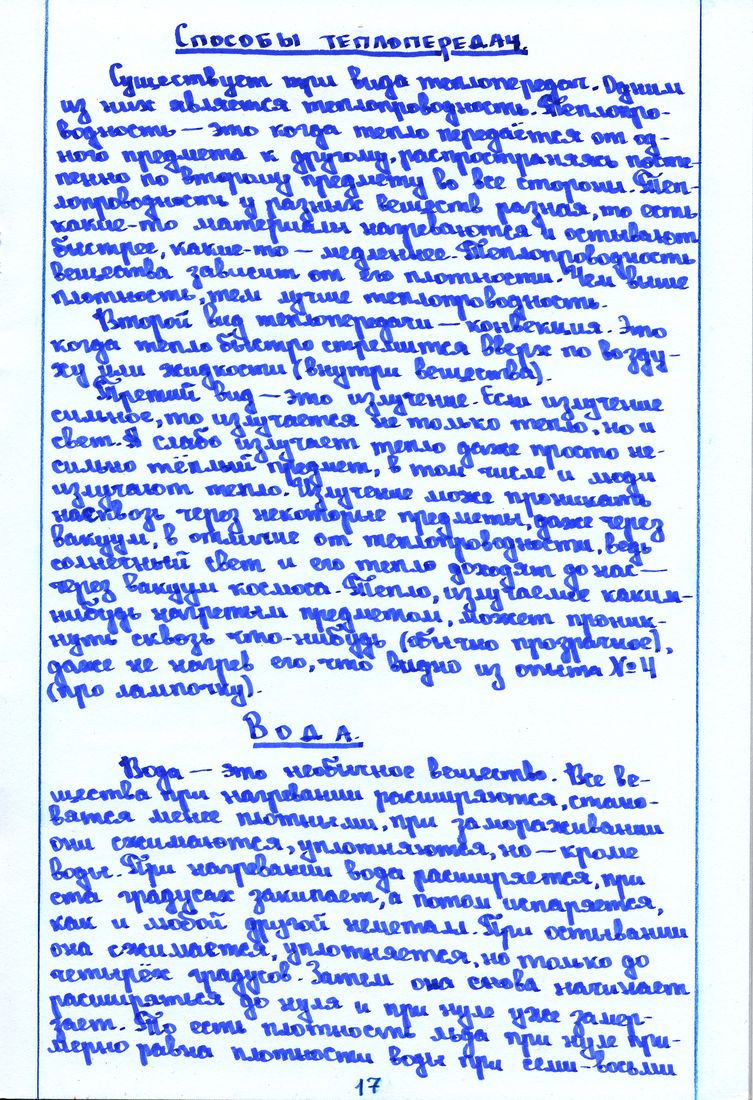 Способы теплопередач.
Существует три вида теплопередач. Одним
из них является теплопроводность. Теплопро-
водность — это когда тепло передаётся от од-
ного предмета к другому, распространяясь посте-
пенно по второму предмету во все стороны. Теп-
лопроводность у разных веществ разная, то есть
какие-то материалы нагреваются и остывают
быстрее, какие-то — медленнее. Теплопроводность
вещества зависит от его плотности. Чем выше
плотность, тем лучше теплопроводность.
Второй вид теплопередачи — конвекция. Это
когда тепло быстро стремится вверх по возду-
ху или жидкости (внутри вещества).
Третий вид — это излучение. Если излучение
сильное, то излучается не только тепло, но и
свет. А слабо излучает тепло даже просто не-
сильно тёплый предмет, в том числе и люди
излучают тепло. Излучение може проникать
насквозь через некоторые предметы, даже через
вакуум, в отличие от теплопроводности, ведь
солнечный свет и его тепло доходят до нас —
через вакуум космоса. Тепло, излучаемое каким-
нибудь нагретым предметом, может проник-
нуть сквозь что-нибудь (обычно прозрачное),
даже не нагрев его, что видно из опыта №4
(про лампочку).
Вода.
Вода — это необычное вещество. Все ве-
щества при нагревании расширяются, стано-
вятся менее плотными, при замораживании
они сжимаются, уплотняются, но — кроме
воды. При нагревании вода расширяется, при
ста градусах закипает, а потом испаряется,
как и любой другой неметалл. При остывании
она сжимается, уплотняется, но только до
четырёх градусов. Затем она снова начинает
расширяться до нуля и при нуле уже замер-
зает. То есть плотность льда при нуле при-
мерно равна плотности воды при семи-восьми
17